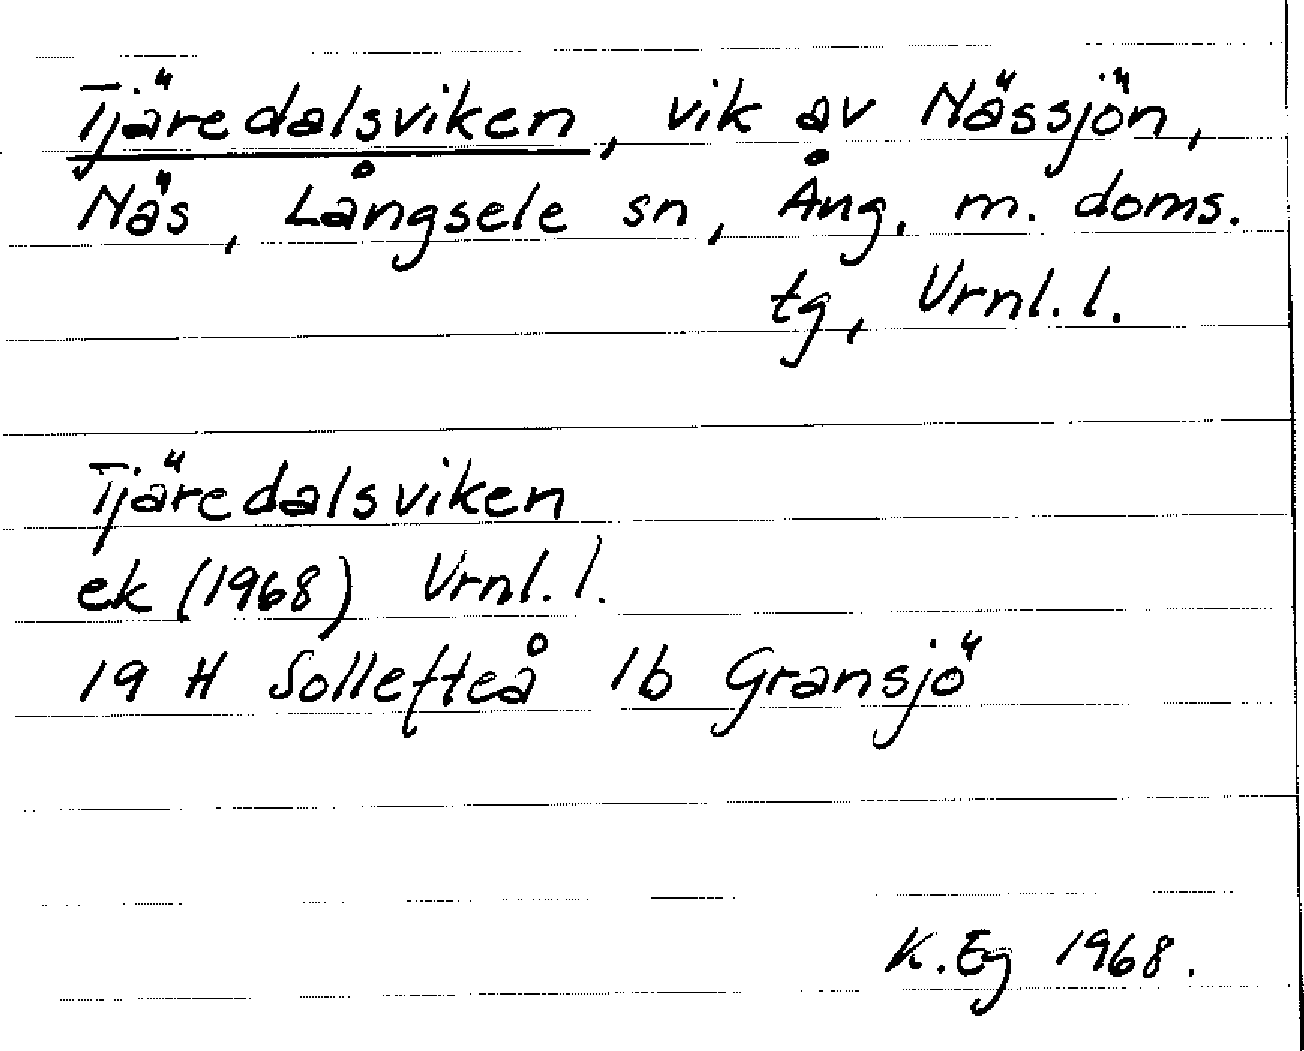 Tjäredalsviken, vik av Nässjön,
Näs, Långsele sn, Ång. m. doms.
tg, Vrnl. l.
Tjäredalsviken
ek (1968) Vrnl. l.
19 H Sollefteå 1b Gransjö
K. Eg 1968.